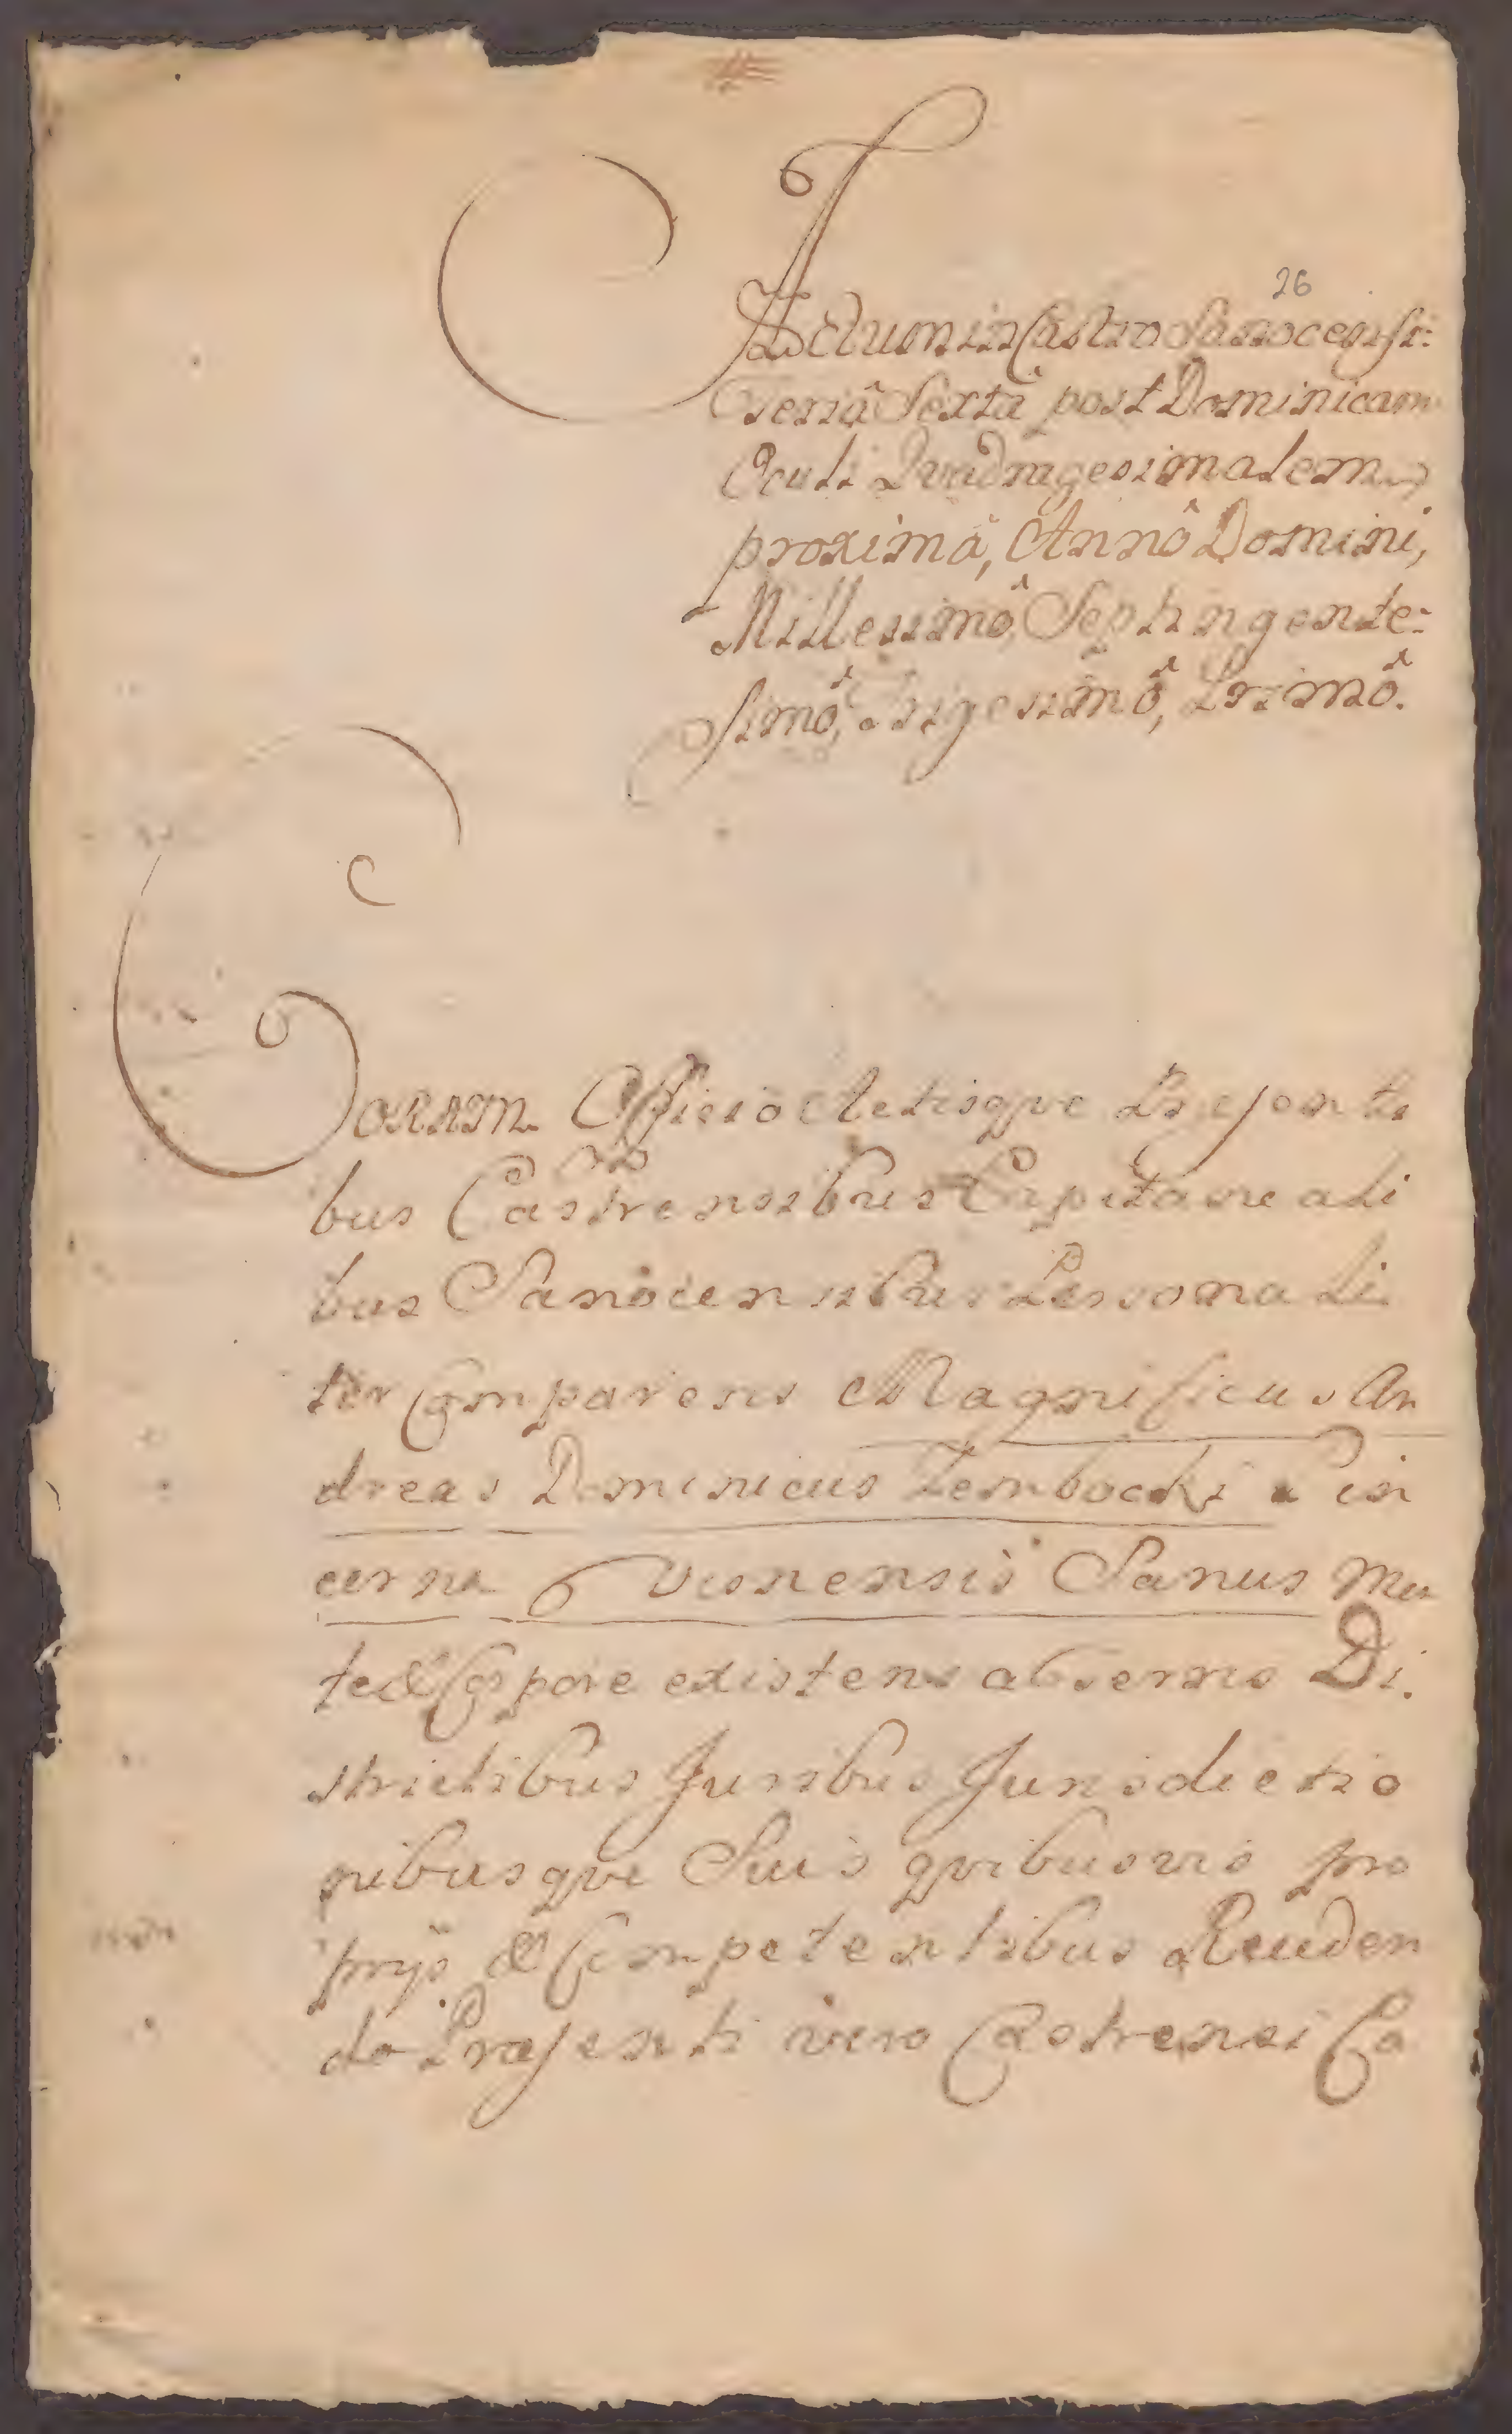 26
Actum in Castro Sanocensi:
Feriâ Sextâ post Dominicam
Oculi Qvadragesimalem
proximâ, Annô Domini,
Millesimô, Septingente:
simô, Trigesimô, Primô.
Coram Officio Actisqve Præsenti
bus Castrensibus Capitaneali
bus Sanocensibus Personali
ter Comparens Magnificus An
dreas Dominicus Dembocki Pin
cerna Owsnensis Sanus Men
te & Corpore existens ab omni Di.
strictibus Juribus Jurisdictio
nibusqve Suis qvibusvis pro
prijs & Competentibus Recuden
do Præsenti vero Castrensi Ca